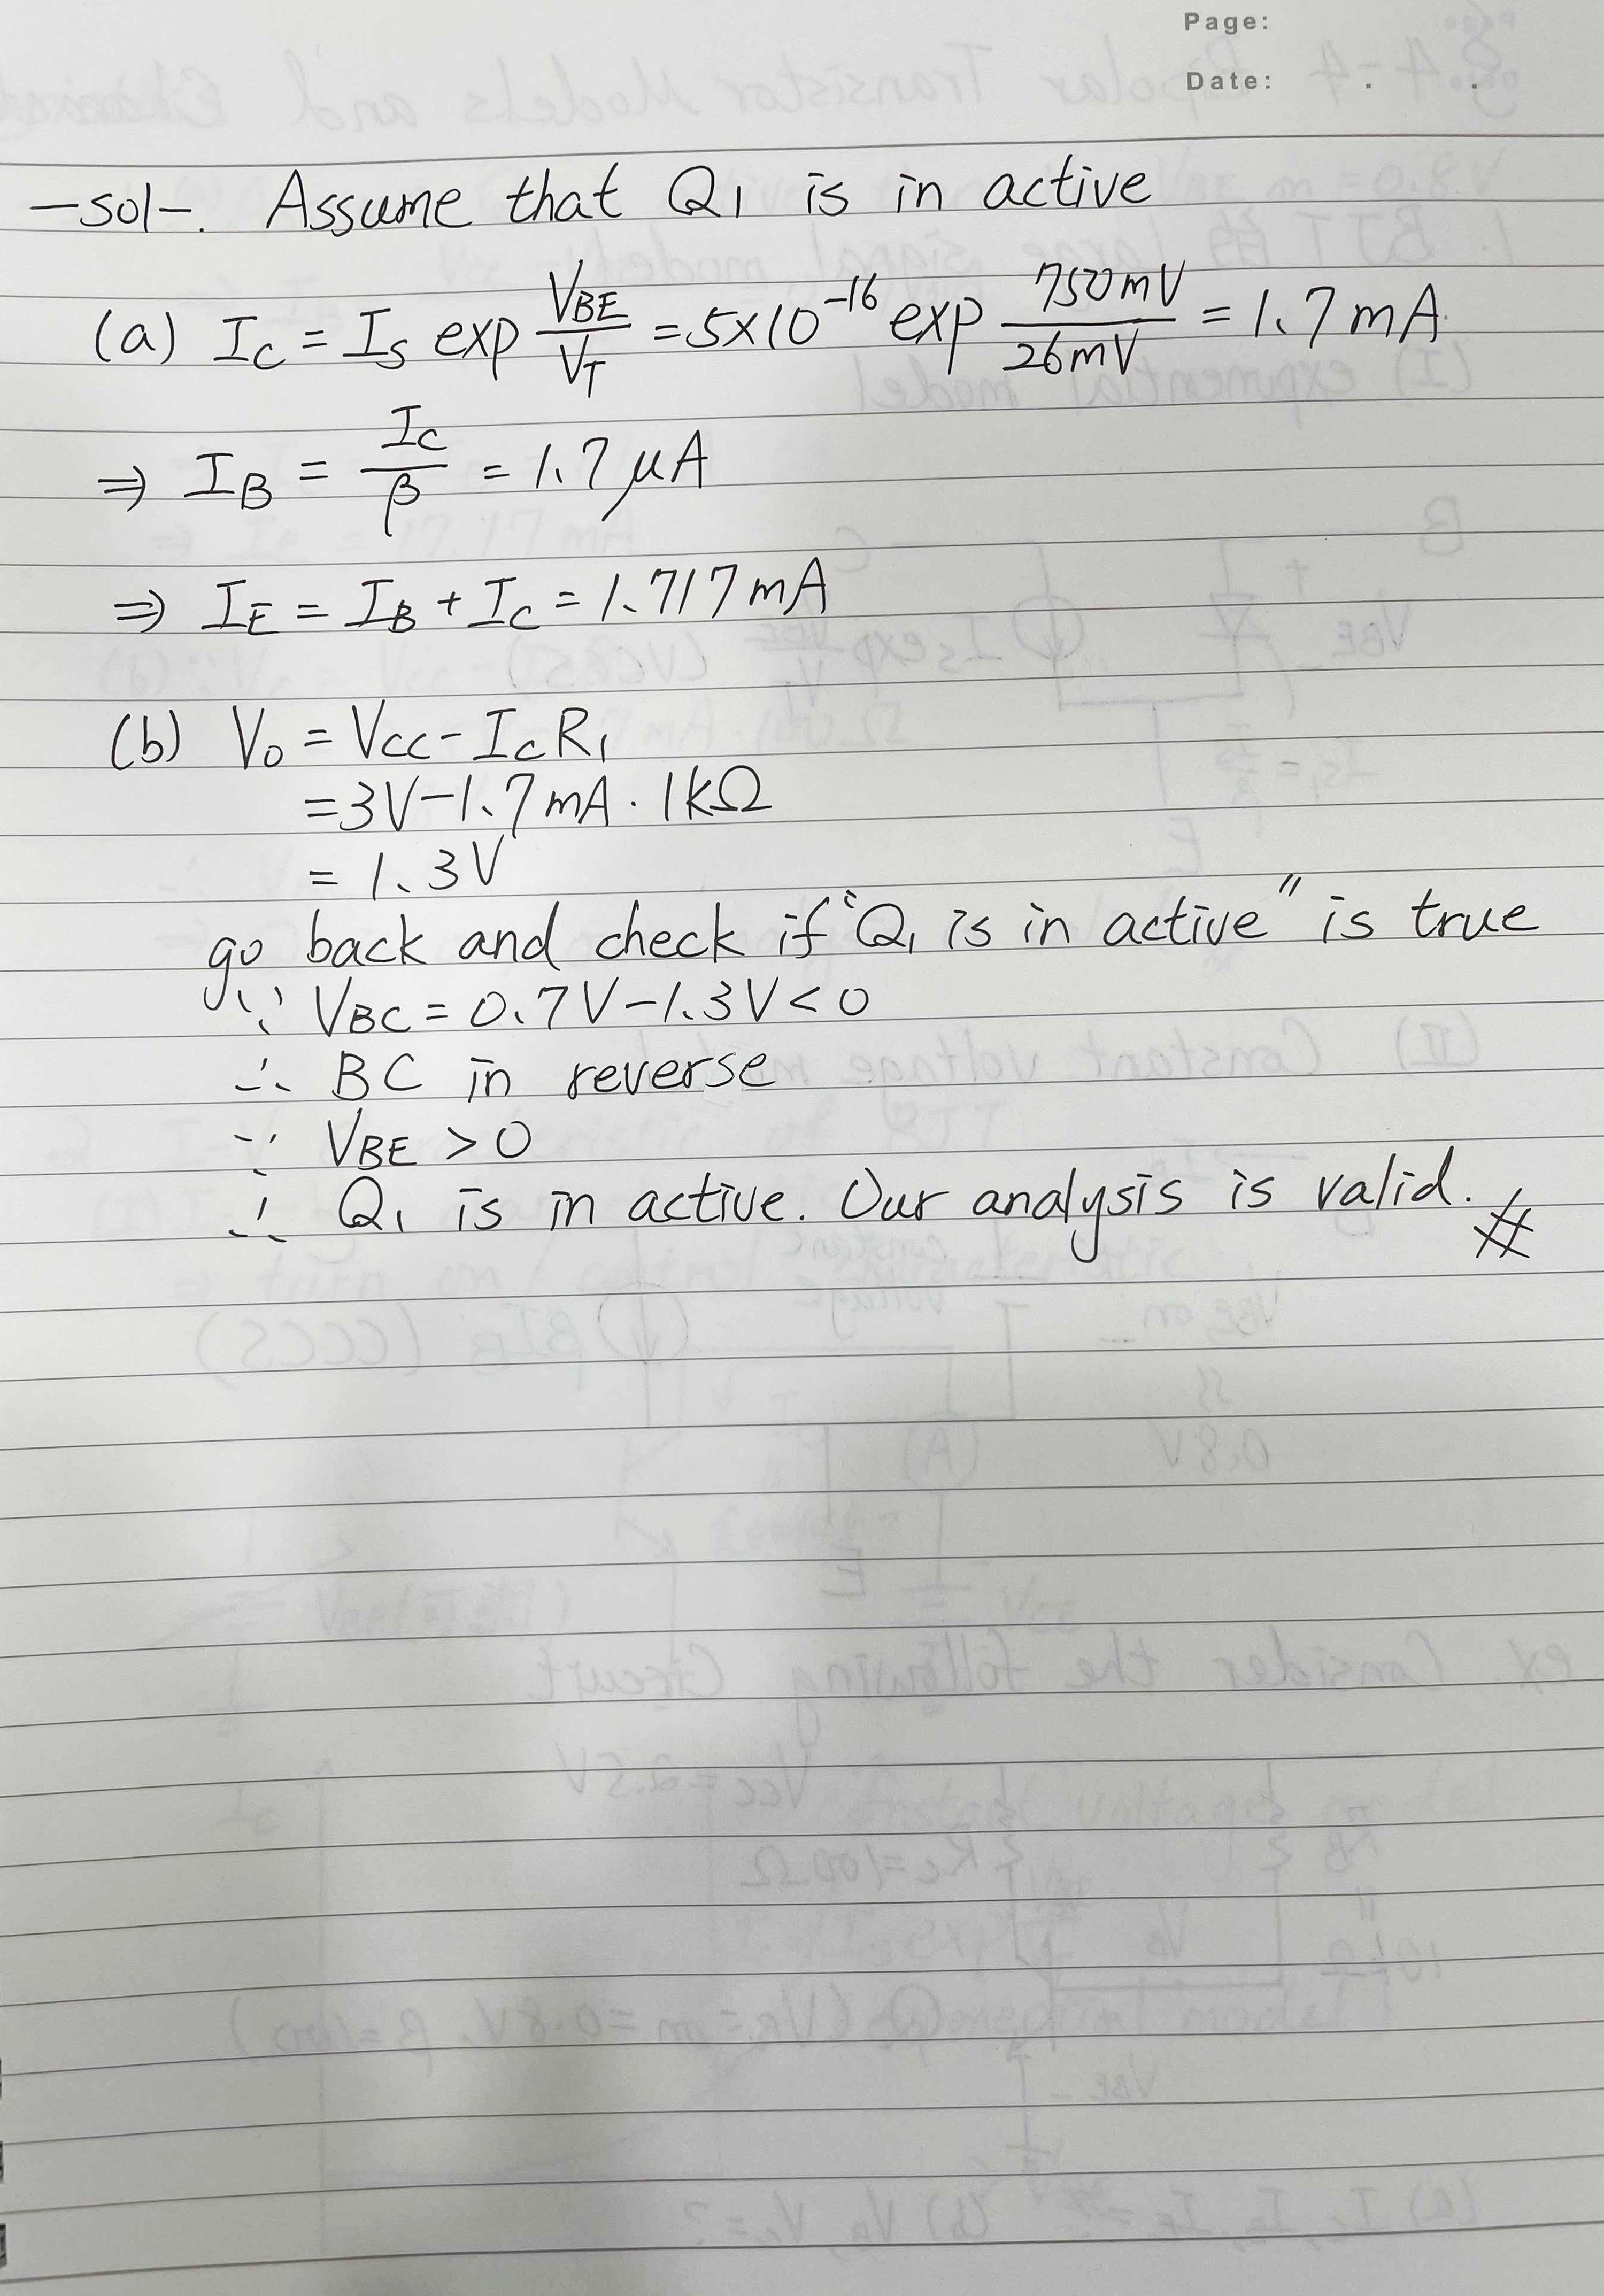 Page:
Date: . .
-sol-. Assume that Q1 is in active
(a) IC = IS exp VBE/VT = 5×10^-16 exp 750mV/26mV = 1.7mA.
⇒ IB = IC/β = 1.7μA
⇒ IE = IB + IC = 1.717mA
(b) Vo = VCC - ICR1
= 3V - 1.7mA · 1kΩ
= 1.3V
go back and check if "Q1 is in active" is true
∵ VBC = 0.7V - 1.3V < 0
∴ BC in reverse
∵ VBE > 0
∴ Q1 is in active. Our analysis is valid. #